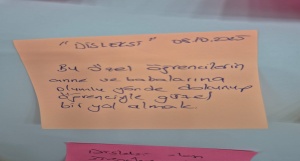 "DİSLEKSİ" 08.10.2025
Bu özel öğrencilerin
anne ve babalarına
olumlu yönde dokunup
öğrenciyle güzel
bir yol almak.